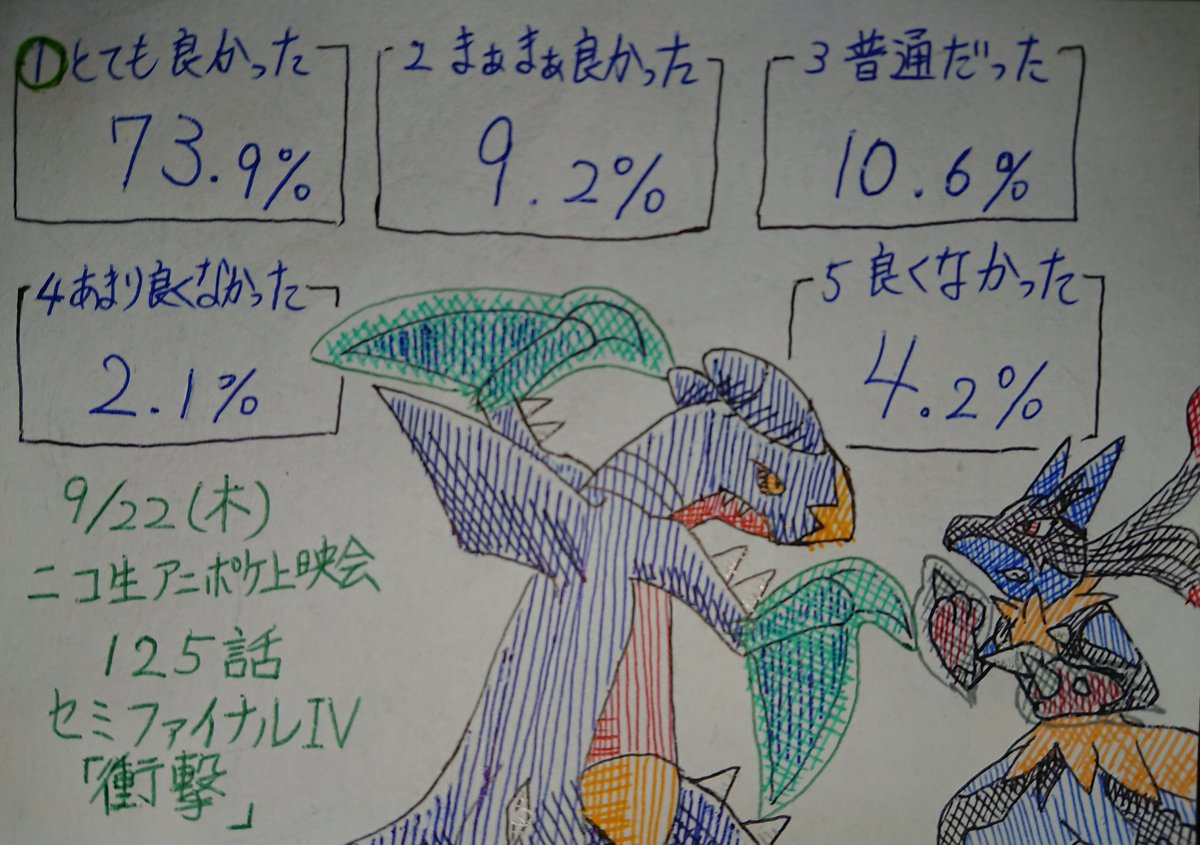 ①とても良かった
73.9%
2 まぁまぁ良かった
9.2%
3 普通だった
10.6%
4 あまり良くなかった
2.1%
5 良くなかった
4.2%
9/22(木)
ニコ生アニポケ上映会
125話
セミファイナルIV
「衝撃」